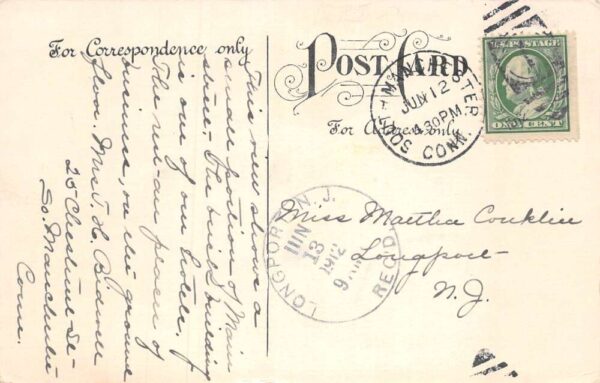 For Correspondence only
POST CARD
For Address only
SOUTH MANCHESTER
JUN 12
4.30 PM
CONN.
U.S. POSTAGE
ONE CENT
This view shows a
small portion of Main
street. The brick building
is one of our hotels.
The rest are places of
business, on the ground
floor. Mrs. T. H. Bidwell
25 Chestnut St-
So. Manchester
Conn.
LONGPORT N. J.
JUN
13
1912
REC'D
Miss Martha Conklin
Longport
N. J.